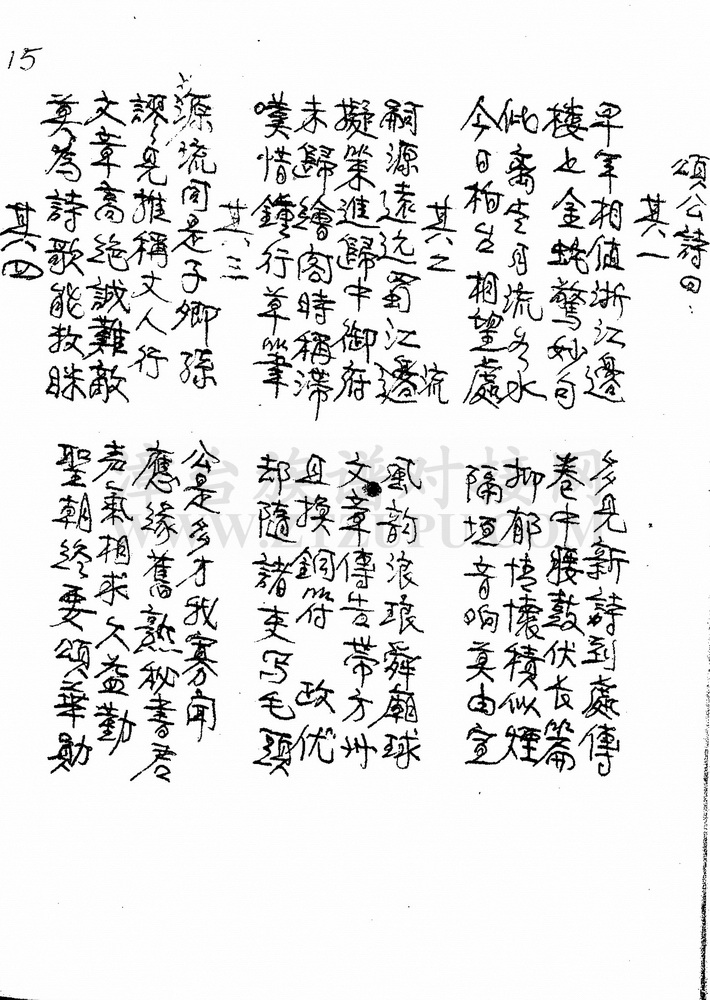 15
頌公詩曰:
其一
早年相值浙江邊 多見新詩到處傳
樓上金蛇驚妙句 卷中腰鼓伏長篇
離 月流 水 抑郁情懷積似煙
今日柏台相望處 隔垣音响莫由宣
其二
嗣源遠 蜀江邊 風韵浪琅舜廟球
流
擬策進歸中御府 文章傳告帶方州
未歸繪閣時稱滞 且換銅符政优
嘆惜鐘行草筆 却隨諸吏写毛頭
其三
源流同是子卿孫 公是多才我寡聞
謬見推稱丈人行 應緣舊熟秘書君
文章高絕誠難敵 声氣相求久益勤
莫為詩歌能教 聖朝終要頌華勛
其四